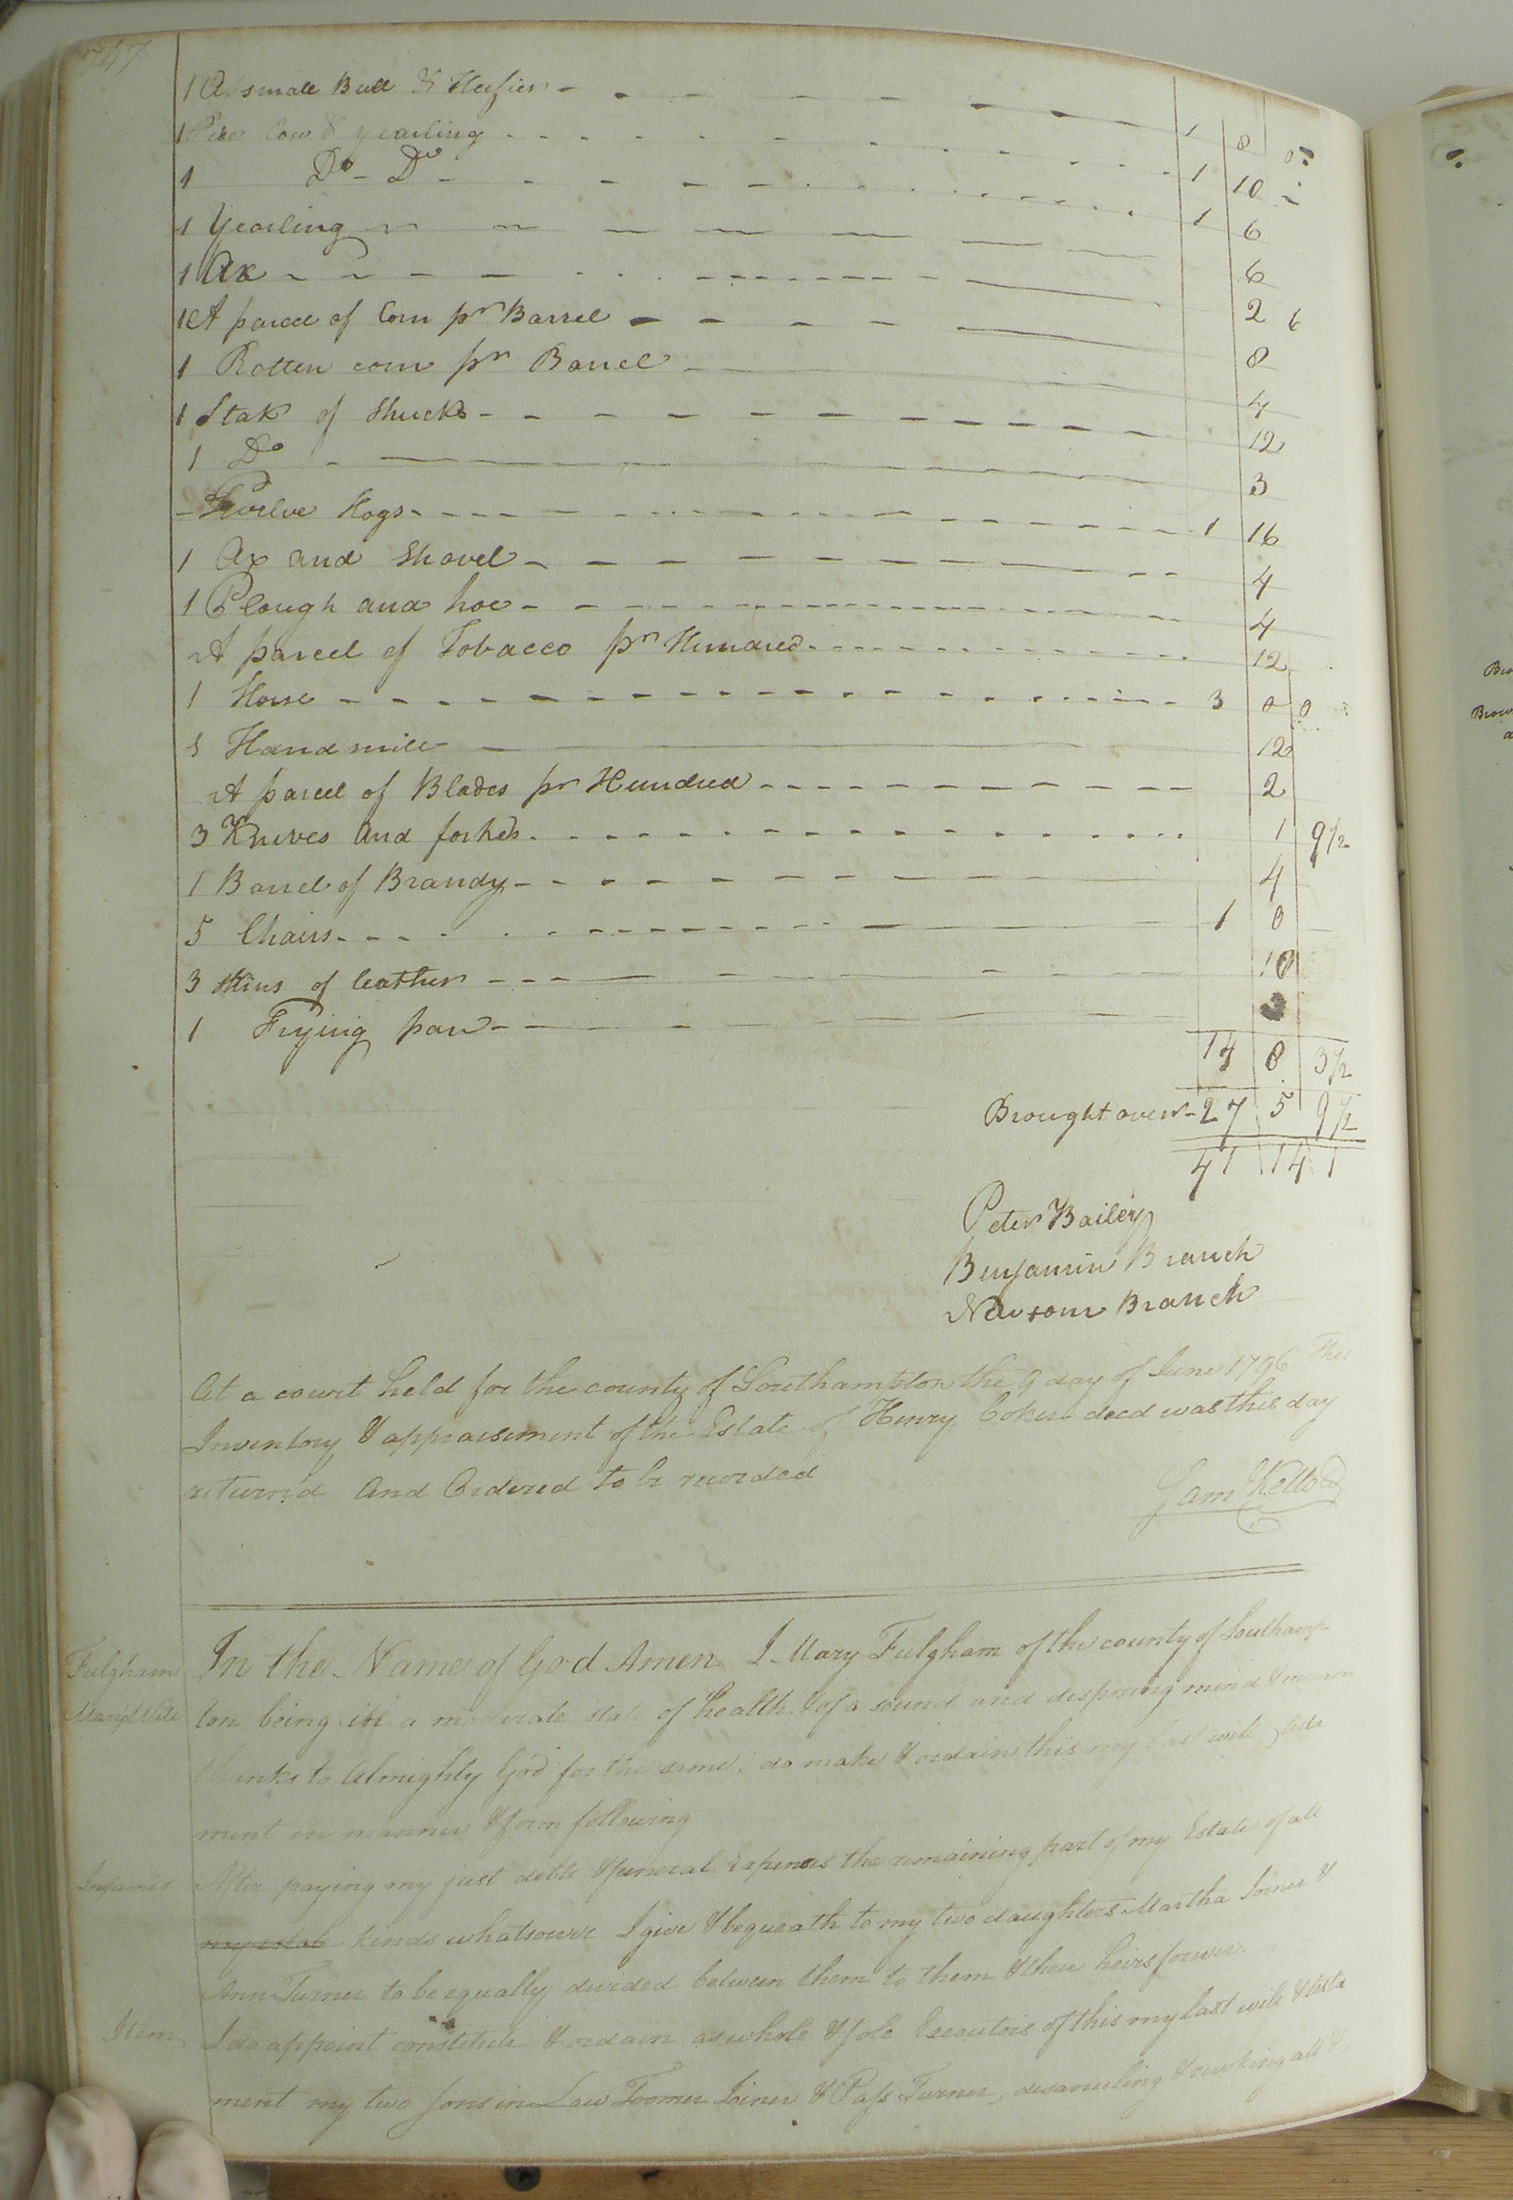 747
1 A small Bull & Heifer - 1 8 0
1 Pide Cow & yearling - 1 10
1 Do - Do - 1 6
1 Yearling 6
1 Ax 2 6
1 A parcel of Corn pr Barrel 8
1 Rotten corn pr Barrel 4
1 Stak of Shucks 12
1 Do 3
Twelve Hogs 1 16
1 Ax and Shovel 4
1 Plough and hoe 4
A parcel of Tobacco pr Hundred 12
1 Horse 3 0 0
1 Hand mill 12
A parcel of Blades pr Hundred 2
3 Knives and forkes 1 9 1/2
1 Barrel of Brandy 4
5 Chairs 1 0
3 Skins of leather 10
1 Frying pan 3
14 8 3 1/2
Brought over 27 5 9 1/2
41 14 1
Peter Bailey
Benjamin Branch
Newsom Branch
At a court held for the county of Southampton the 9 day of June 1796 This
Inventory & appraisement of the Estate of Henry Coker decd was this day
returned and Ordered to be recorded
Sam Kello
Fulgham In the Name of God Amen I Mary Fulgham of the county of Southamp
Mary's Will ton being in a moderate state of health & of a sound and disposing mind & memory
thanks to Almighty God for the same, do make & ordain this my last will & testa
ment in manner & form following
Inprimis After paying my just debts & funeral Expences the remaining part of my Estate of all
my estate kinds whatsoever I give & bequeath to my two daughters Martha Joiner &
Ann Turner to be equally divided between them to them & their heirs forever.
Item I do appoint constitute & ordain as whole & sole Executors of this my last will & testa
ment my two sons in Law Toomer Joiner & Pass Turner, disanuling & revoking all &